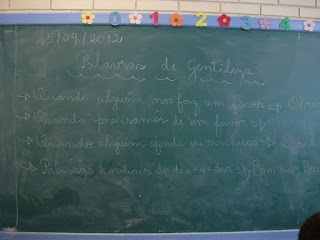 0 1 2 3 4
25/04/2012
Palavras de Gentileza
→ Quando alguém nos faz um favor → Obri
→ Quando precisamos de um favor →
→ Quando alguém ofende ou machuca →
→ Palavras cordiais do dia-a-dia → Bom dia - Bo